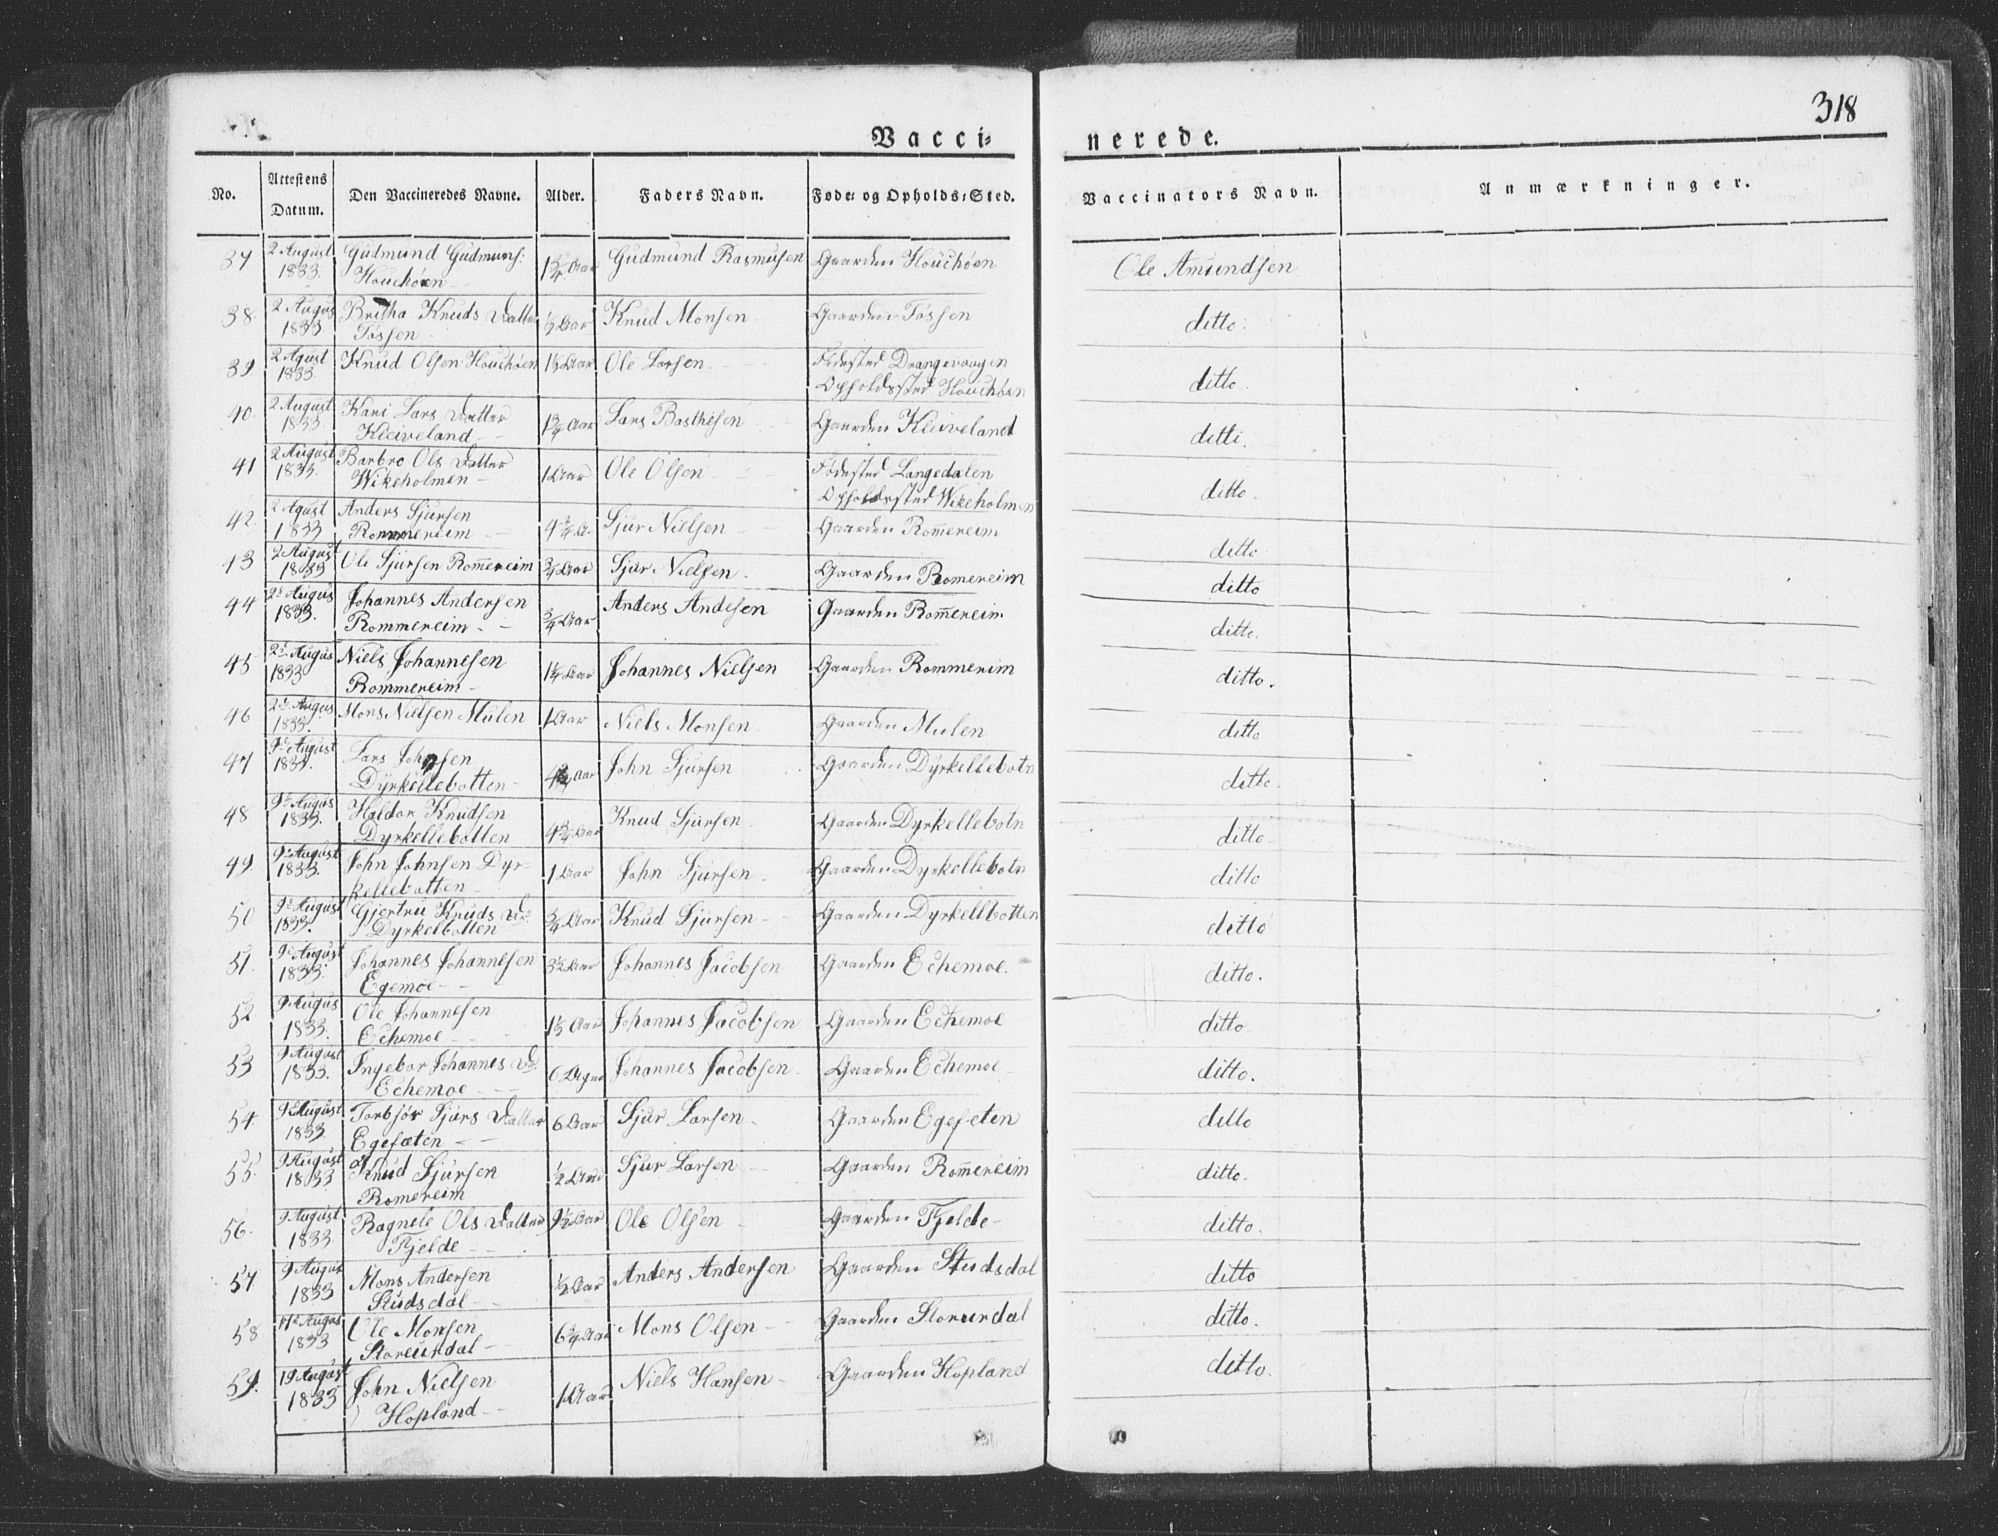 318
Vacci= nerede.
No. Attestens Datum. Den Vaccineredes Navne. Alder. Faders Navn. Føde= og Opholds=Sted. Vaccinators Navn. Anmærkninger.
37 2 August Gudmund Gudmuns: 1 3/4 Aar Gudmund Rasmusen Gaarden Houchøen Ole Amundsen
1833. Houchøen
38 2 Augus Britha Knuds Datter 1/2 Aar Knud Monsen Gaarden Tøssen ditto.
1833 Tøssen
39 2 Agust Knud Olsen Houchøen 1 1/2 Aar Ole Larsen Fødested Drangevaagen ditto.
1833. Opholdssted Houchøen
40 2 August Kari Lars Datter 1 3/4 Aar Lars Basthesen Gaarden Kleiveland ditti.
1833. Kleiveland
41 2 August Barbro Ols Datter 1 Aar Ole Olsen Fødested Langedalen ditto.
1833. Wikeholmen Opholdssted Wikeholmen
42. 2 Agust Anders Sjursen 4 3/4 A. Sjur Nielsen Gaarden Rom̅ereim ditto
1833 Rommereim
43 2 August Ole Sjursen Rom̅ereim 3/4 Aar Sjur Nielsen. Gaarden Romereim ditto
1833
44 2 Augus Johannes Andersen 3/4 Aar Anders Andesen Gaarden Rom̅ereim ditto.
1833. Rommereim
45 2 Augus Niels Johannesen 1 1/4 Aar Johannes Nielsen Gaarden Rommerim ditto.
1833 Rommereim
46 2 Augus Mons Nielsen Mulen 1 Aar Niels Monsen Gaarden Mulen ditto
1833.
47 9 August Lars Johnsen 4 3/4 Aar John Sjursen Gaarden Dyrkellebotn ditto.
1833. Dyrkellebotten
48 9 Augus Haldor Knudsen 4 3/4 Aar Knud Sjursen Gaarden Dyrkellebotn ditto
1833. Dyrkellebotten
49. 9 August John Johnsen Dyr- 1 Aar John Sjursen Gaarden Dyrkellebotn ditto
1833. kellebotten
50 9 August Gjertru Knuds D. 3/4 Aar Knud Sjursen Gaarden Dyrkellbotten ditto
1833. Dyrkelbotten
51. 9 August Johannes Johannesen 3 1/2 Aar Johannes Jacobsen Gaarden Echemoe. ditto.
1833. Egemoe
52 9 Augus Ole Johannesen 1 1/2 Aar Johannes Jacobsen Gaarden Echemoe ditto.
1833. Echemoe
53 9 August Ingebor Johannes D. 6 Johannes Jacobsen Gaarden Echemoe ditto.
1833. Echemoe
54. 9 August Torbjør Sjurs Datter 6 Aar Sjur Larsen Gaarden Egeseten ditto
1833 Egesæten
55. 9 August Knud Sjursen 1/2 Aar Sjur Larsen Gaarden Rom̅ereim ditto.
1833 Romereim
56. 9 August Ragnele Ols Datter 9 1/2 Aar Ole Olsen Gaarden Fjelde ditto.
1833 Fjelde
57 9 Augus Mons Andersen 1/2 Aar Anders Andersen Gaarden Studsdal ditto
1833 Studsdal
58 17 Augus Ole Monsen 6 3/4 Aar Mons Olsen Gaarden Storurdal ditto.
1833 Storeurdal
59. 19 August John Nielsen 1 Aar Niels Hansen Gaarden Hopland ditto.
1833 Hopland